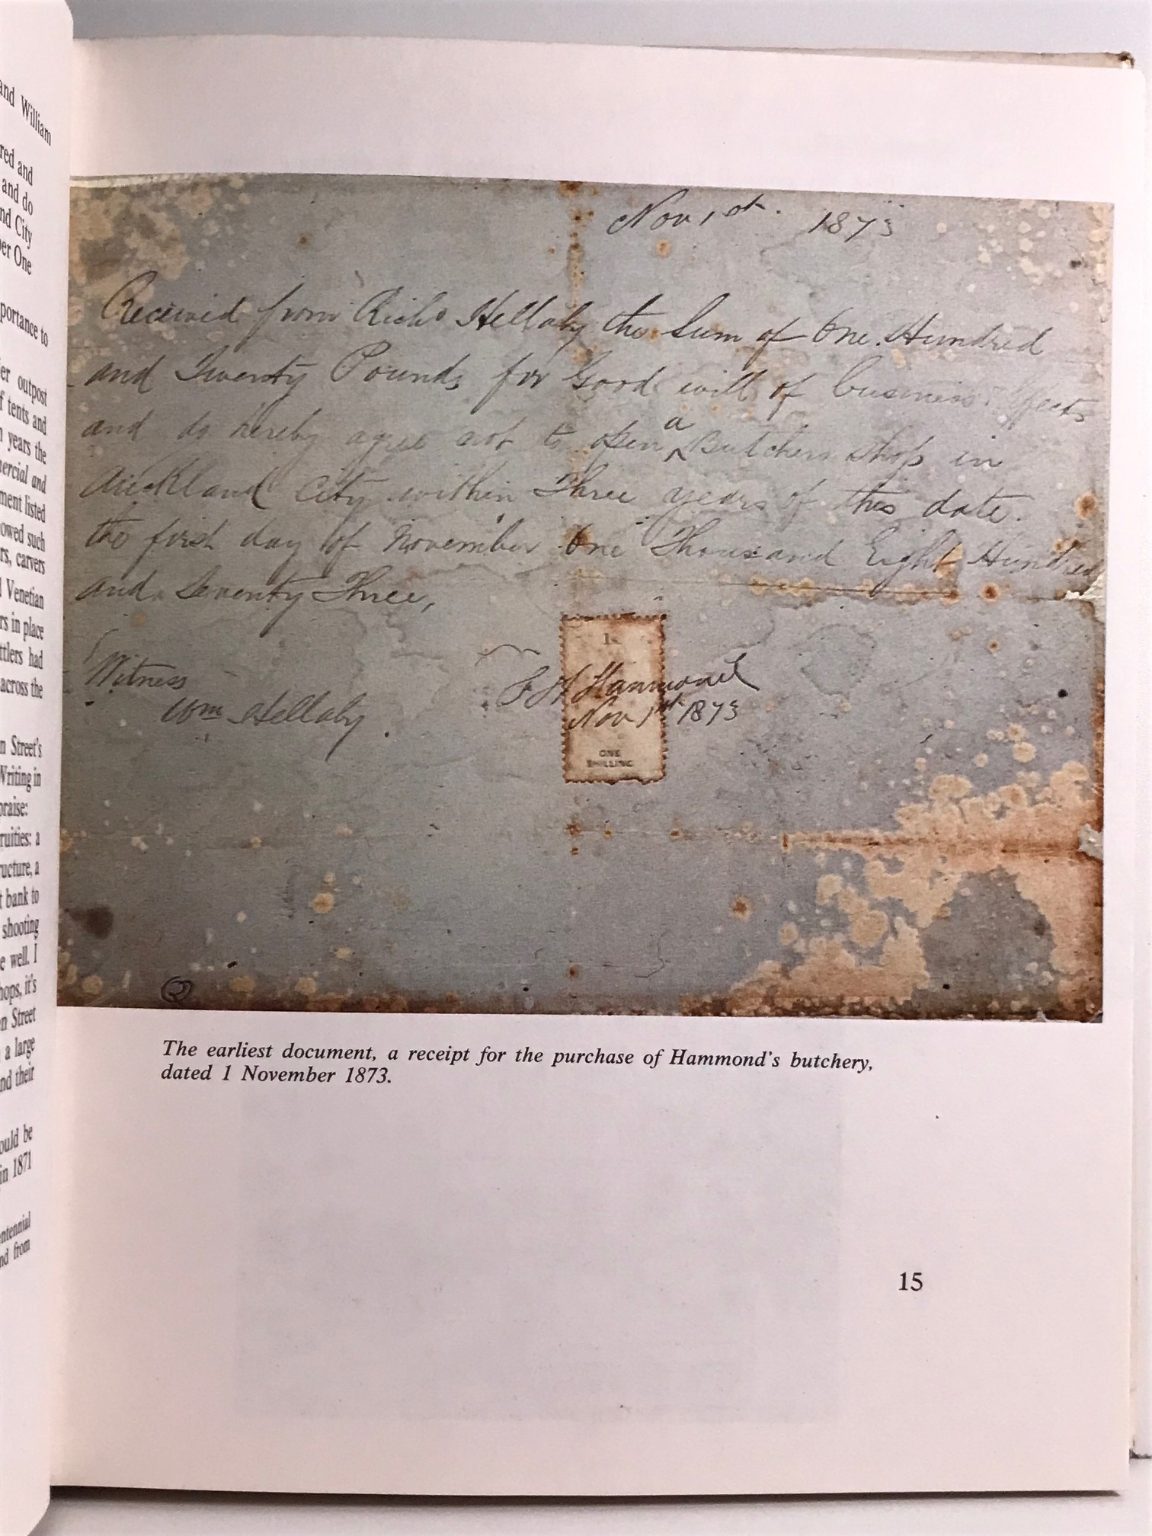 and William
red and
and do
nd City
er One
portance to
er outpost
f tents and
n years the
ercial and
ment listed
owed such
rs, carvers
l Venetian
rs in place
ttlers had
across the
n Street's
Writing in
praise:
ruities: a
ructure, a
t bank to
shooting
e well. I
hops, it's
n Street
a large
nd their
ould be
in 1871
entennial
nd from
Nov 1st. 1873
Received from Richd Hellaby the Sum of One Hundred
and Twenty Pounds for Good will of business effects
and do hereby agree not to open a Butchers Shop in
Auckland City within Three years of this date.
the first day of November One Thousand Eight Hundred
and Seventy Three,
1
Witness
Wm Hellaby.
Hammond
Nov 1st 1873
ONE
SHILLING
2
The earliest document, a receipt for the purchase of Hammond's butchery,
dated 1 November 1873.
15